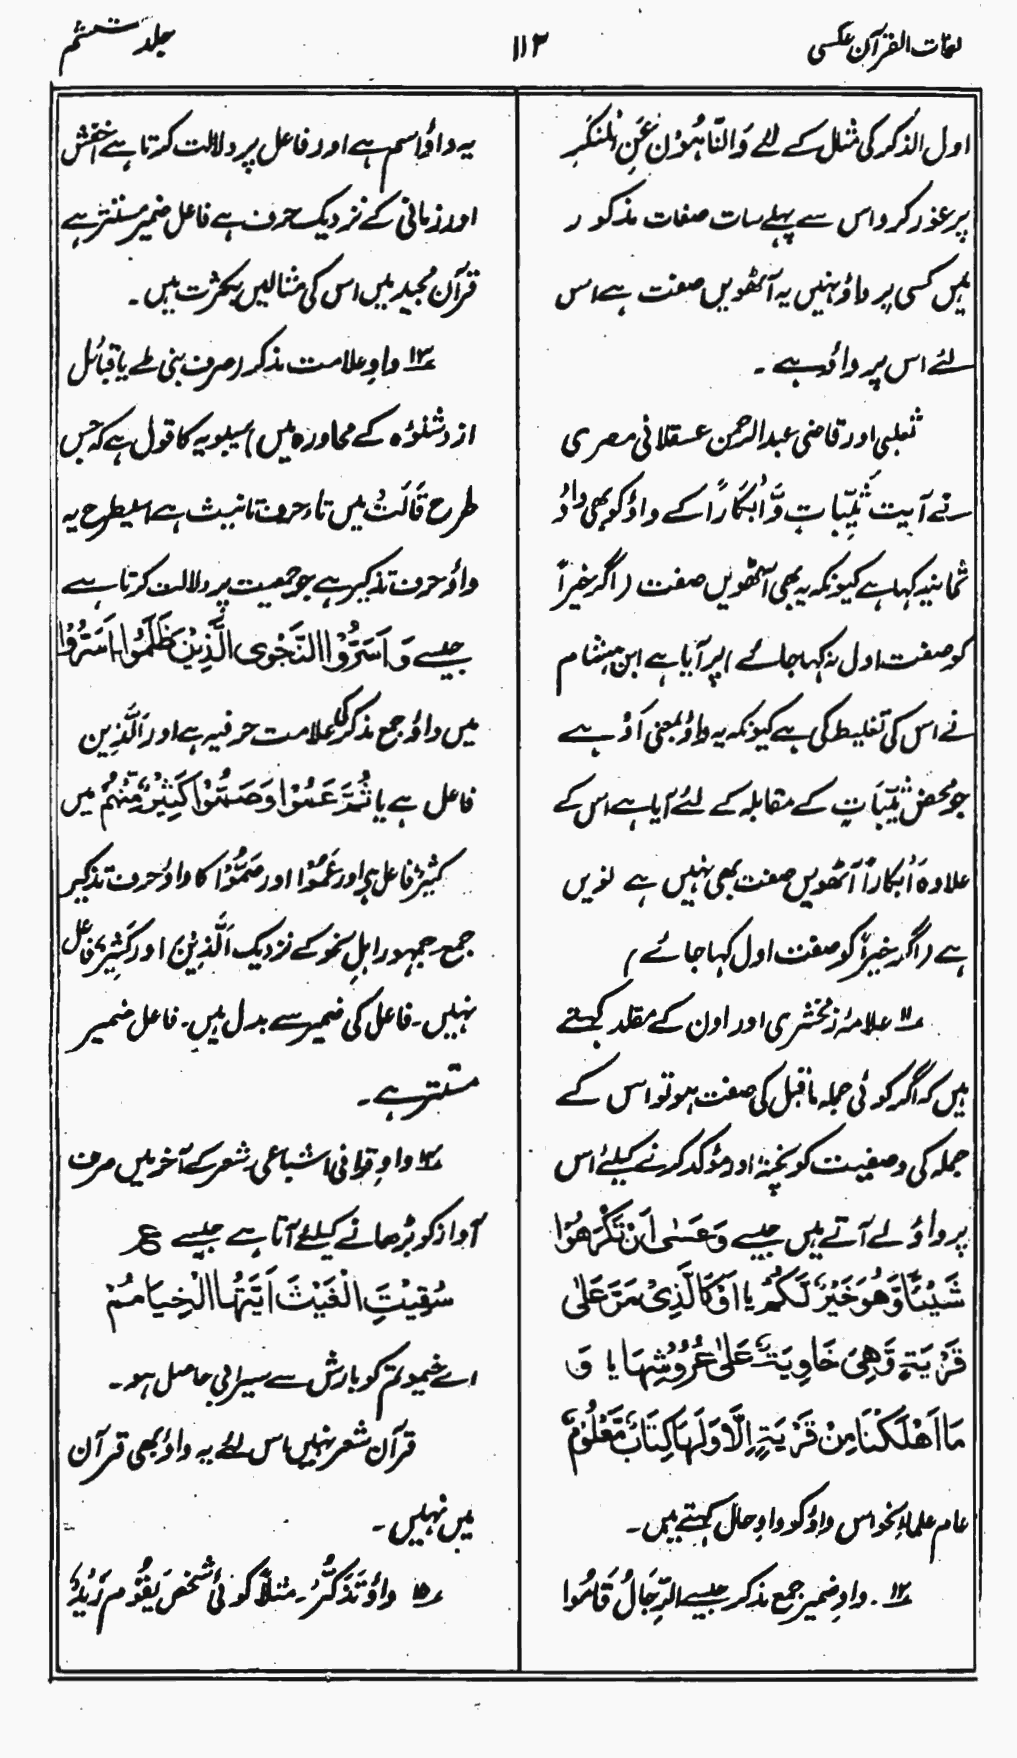 لغات القرآن عکسی
۱۱۲
جلد ششم
اول الذکر کی مثال کے لئے وَالنَّاهُوْنَ عَنِ الْمُنْكَرِ
پر غور کرو اس سے پہلے سات صفات مذکور
ہیں کسی پر واؤ نہیں یہ آٹھویں صفت ہے اس
لئے اس پر واؤ ہے۔
ثعلبی اور قاضی عبدالرحمن عسقلانی مصری
نے آیت ثَيِّبَاتٍ وَّاَبْكَارًا کے واؤ کو بھی واؤ
ثمانیہ کہا ہے کیونکہ یہ بھی آٹھویں صفت (اگر خیراً
کو صفت اول نہ کہا جائے) پر آیا ہے ابن ہشام
نے اس کی تغلیط کی ہے کیونکہ یہ واؤ بمعنی اَوْ ہے
جو محض ثَيِّبَاتٍ کے مقابلہ کے لئے آیا ہے اس کے
علاوہ اَبْكَارًا آٹھویں صفت بھی نہیں ہے نویں
ہے (اگر خیراً کو صفت اول کہا جائے)
۱۱ علامہ زمخشری اور اون کے مقلد کہتے
ہیں کہ اگر کوئی جملہ ماقبل کی صفت ہو تو اس کے
جملہ کی وصفیت کو پختہ اور مؤکد کرنے کیلئے اس
پر واؤ لے آتے ہیں جیسے وَعَسٰى اَنْ تَكْرَهُوْا
شَيْئًا وَّهُوَ خَيْرٌ لَّكُمْ یا اَوْ كَالَّذِىْ مَرَّ عَلٰى
قَرْيَةٍ وَّهِىَ خَاوِيَةٌ عَلٰى عُرُوْشِهَا یا وَ
مَا اَهْلَكْنَا مِنْ قَرْيَةٍ اِلَّا وَلَهَا كِتَابٌ مَّعْلُوْمٌ
عام علماء نحو اس واؤ کو واوِ حال کہتے ہیں۔
۱۲۔ واوِ ضمیر جمع مذکر جیسے الرِّجَالُ قَامُوْا
یہ واؤ اسم ہے اور فاعل پر دلالت کرتا ہے اخفش
اور زمانی کے نزدیک حرف ہے فاعل ضمیر مستتر ہے
قرآن مجید میں اس کی مثالیں بکثرت ہیں۔
۱۳ واوِ علامت مذکر (صرف بنی طے یا قبائل
ازد شنوٰہ کے محاورہ میں) سیبویہ کا قول ہے کہ جس
طرح قَالَتْ میں تاء حرف تانیث ہے اسیطرح یہ
واؤ حرف تذکیر ہے جو جمعیت پر دلالت کرتا ہے
جیسے وَاَسَرُّوا النَّجْوَى الَّذِيْنَ ظَلَمُوْا اَسَرُّوْا
میں واؤ جمع مذکر کی علامت حرفیہ ہے اور اَلَّذِیْنَ
فاعل ہے یا ثُمَّ عَمُوْا وَصَمُّوْا كَثِيْرٌ مِّنْهُمْ میں
کَثِیْرٌ فاعل ہے اور عَمُوْا اور صَمُّوْا کا واؤ حرف تذکیر
جمع۔ جمہور اہلِ نحو کے نزدیک اَلَّذِیْنَ اور کَثِیْرٌ فاعل
نہیں۔ فاعل کی ضمیر سے بدل ہیں۔ فاعل ضمیر
مستتر ہے۔
۱۴ واوِ قوافی اشباعی۔ شعر کے آخر میں صرف
آواز کو بڑھانے کیلئے آتا ہے جیسے ع
سُقِيْتِ الْغَيْثَ اَيَّتُهَا الْخِيَامُ
اے خیمو تم کو بارش سے سیرابی حاصل ہو۔
قرآن شعر نہیں اس لئے یہ واؤ بھی قرآن
میں نہیں۔
۱۵ واؤ تَذَکُّر۔ مثلاً کوئی شخص یَقُوْمُ زَیْدٌ